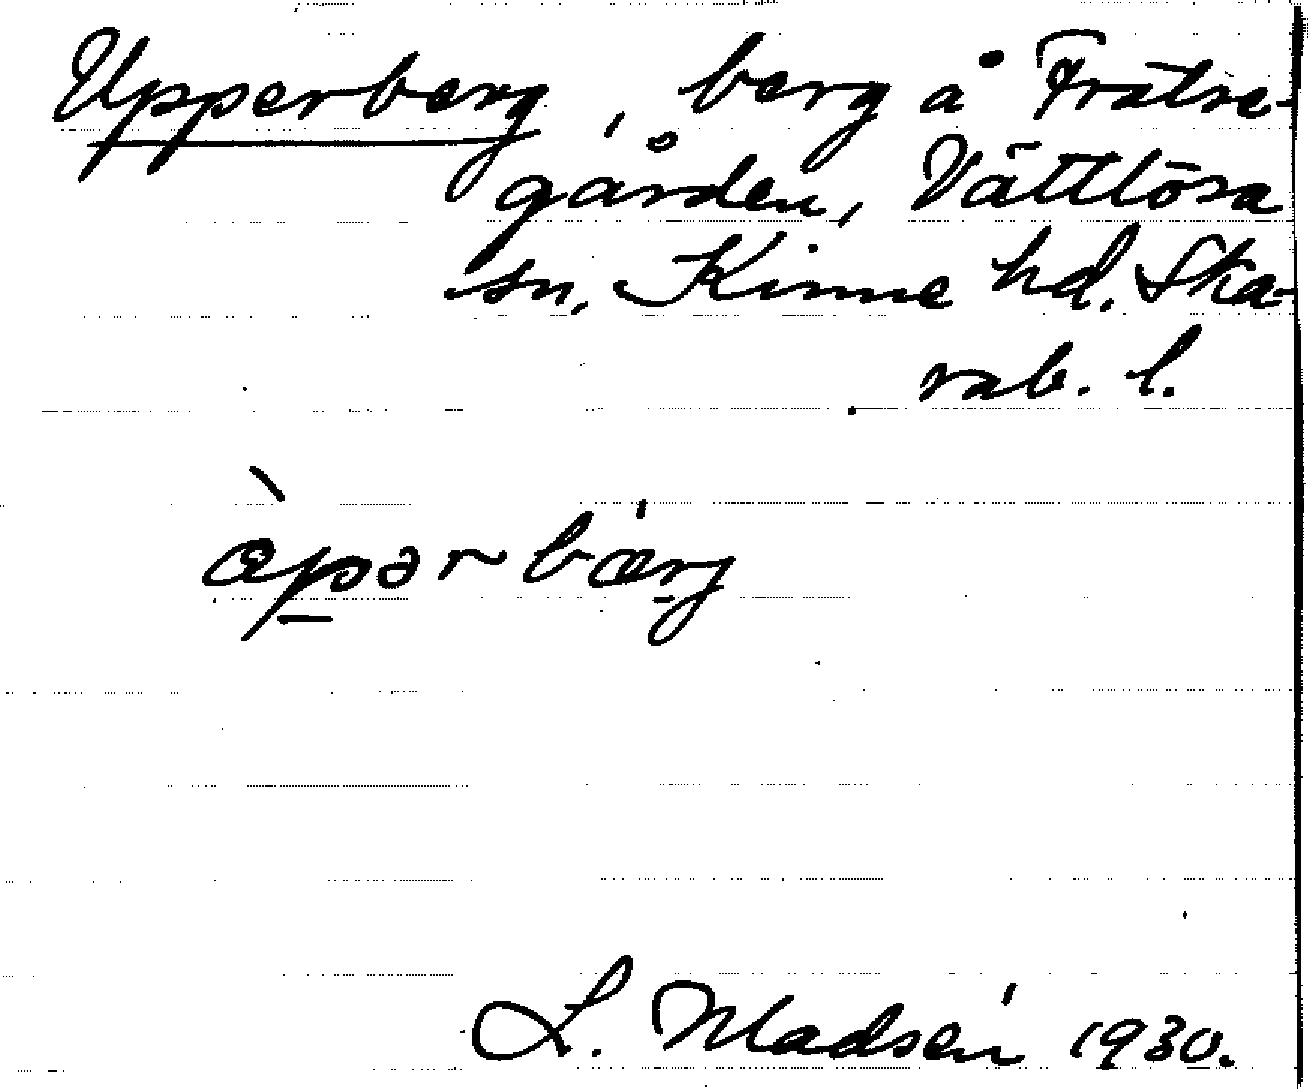 Upperberg, berg å Frätre-
gården, Vättlösa
sn, Kinne hd. Ska-
rab. l.
L. Madsén 1930.